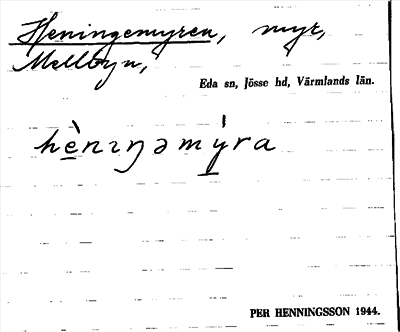 Heningemyren, myr,
Mellbyn,
Eda sn, Jösse hd, Värmlands län.
hè̱nıŋəmý̱ra
PER HENNINGSSON 1944.